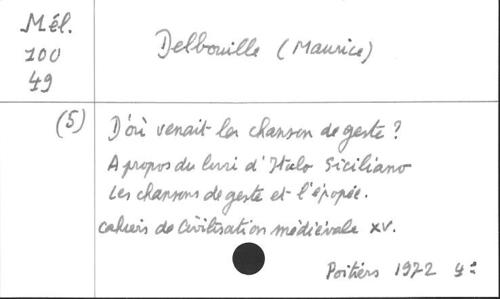 Mél.
100
49
Delbouille (Maurice)
(5)
D'où venait la chanson de geste?
A propos du livre d'Italo Siciliano
Les chansons de geste et l'épopée.
Cahiers de Civilisation médiévale XV.
Poitiers 1972 4º